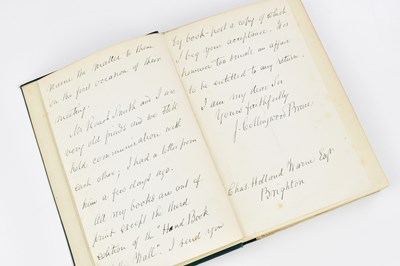 name the matter to them
on the first occasion of their
meeting.
Mr Roach Smith and I are
very old friends and we still
hold communication with
each other; I had a letter from
him a few days ago.
All my books are out of
print except the third
edition of the "Hand Book
Wall". I send you
by book-post a copy of which
I beg your acceptance. It is
however too small an affair
to be entitled to any return.
I am my dear Sir
Yours faithfully
J. Collingwood Bruce
Chas. Holland Warne Esqr
Brighton